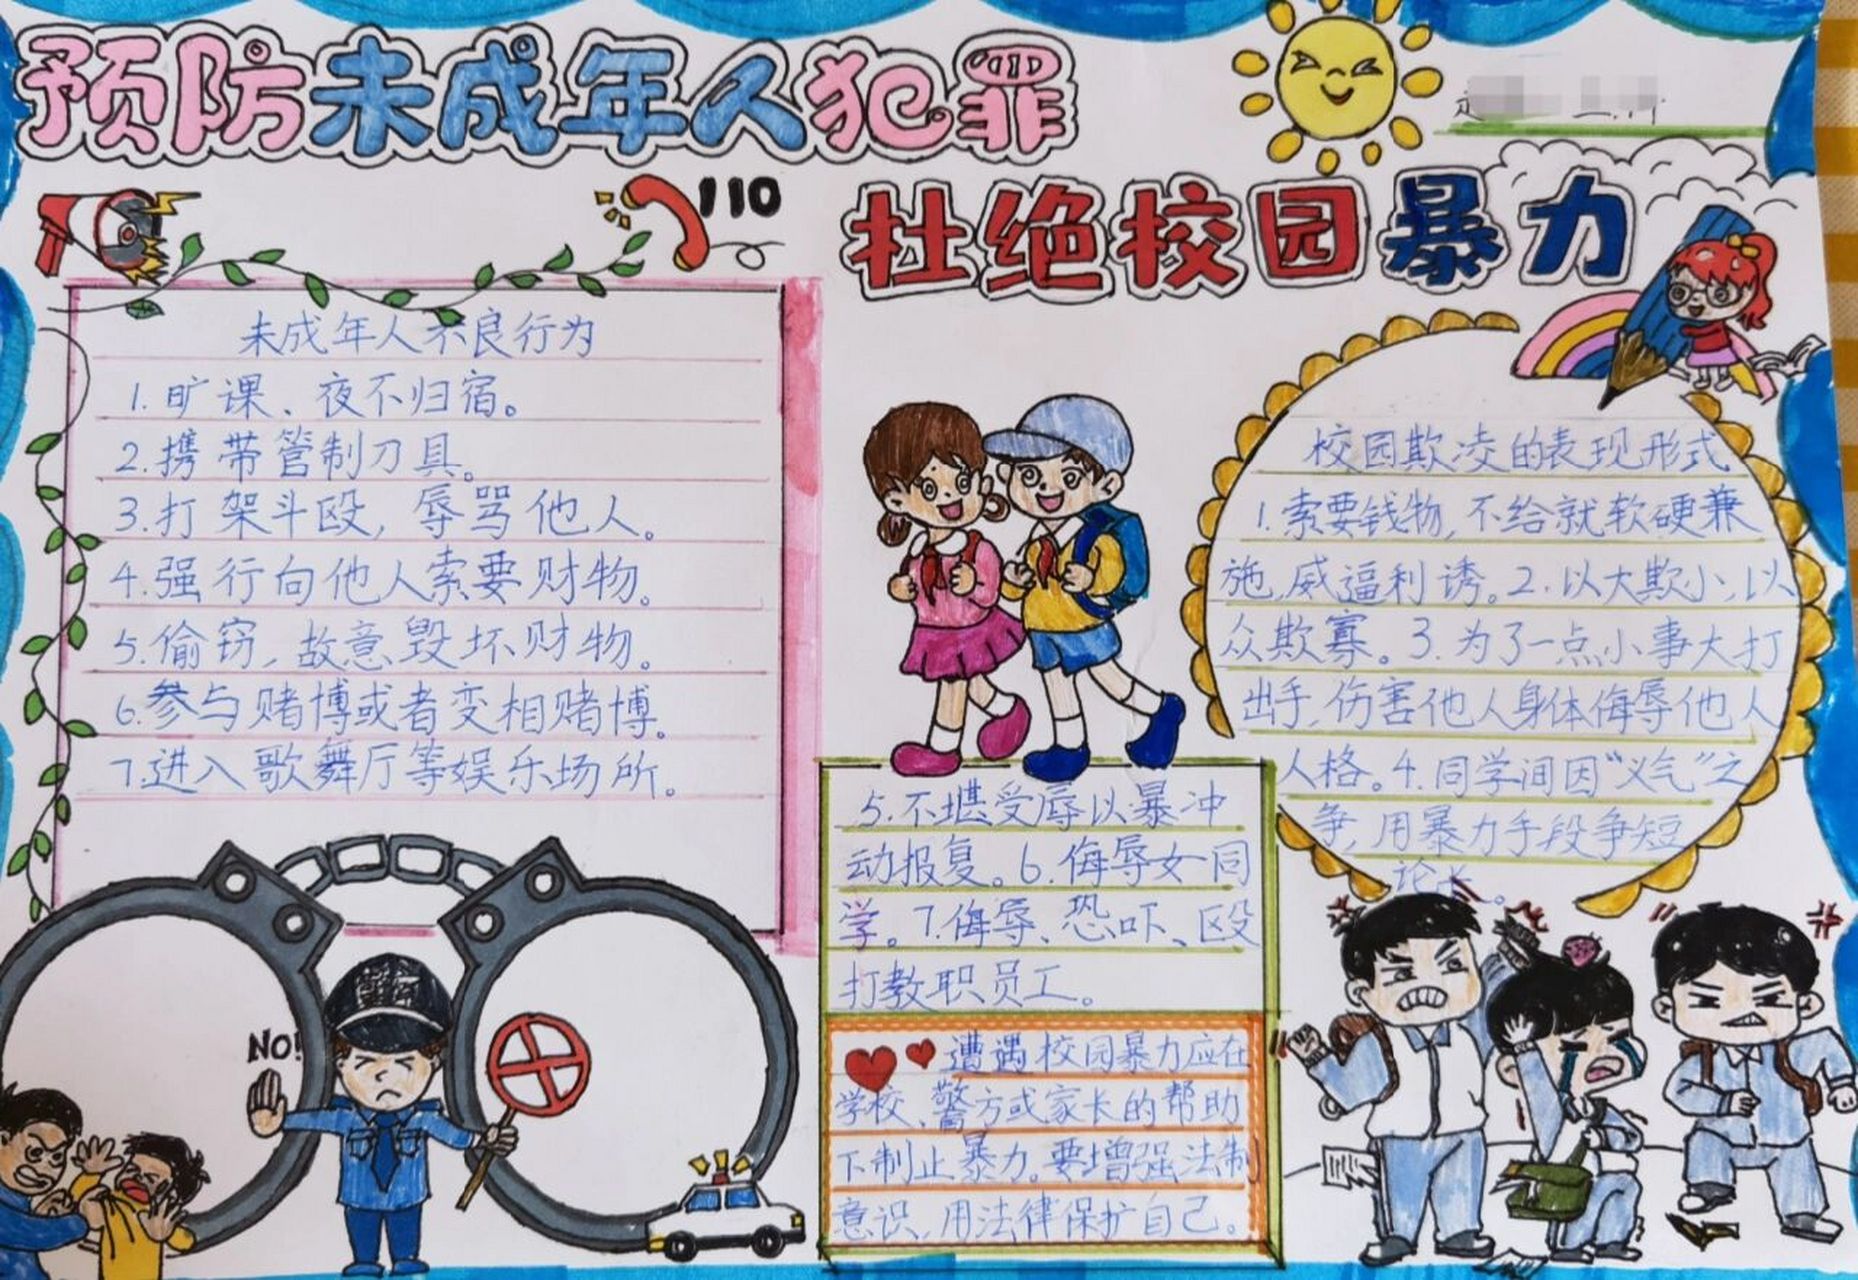 预防未成年人犯罪
杜绝校园暴力
110
未成年人不良行为
1.旷课、夜不归宿。
2.携带管制刀具。
3.打架斗殴,辱骂他人。
4.强行向他人索要财物。
5.偷窃,故意毁坏财物。
6.参与赌博或者变相赌博。
7.进入歌舞厅等娱乐场所。
NO!
校园欺凌的表现形式
1.索要钱物,不给就软硬兼
施,威逼利诱。2.以大欺小,以
众欺寡。3.为了一点小事大打
出手,伤害他人身体侮辱他人
人格。4.同学间因“义气”之
争,用暴力手段争短
论长。
5.不堪受辱以暴冲
动报复。6.侮辱女同
学。7.侮辱、恐吓、殴
打教职员工。
遭遇校园暴力应在
学校、警方或家长的帮助
下制止暴力。要增强法制
意识,用法律保护自己。